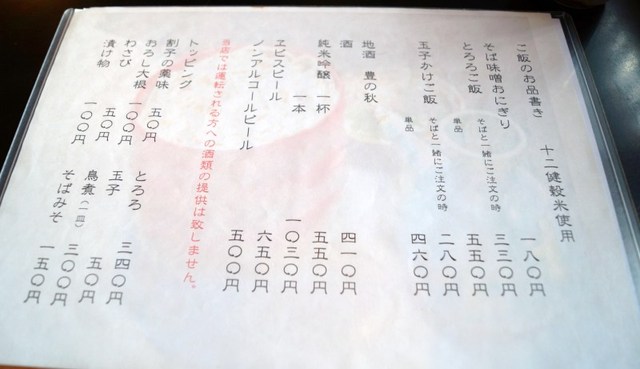 ご飯のお品書き 十二健穀米使用
そば味噌おにぎり 一八〇円
とろろご飯 そばと一緒にご注文の時 三三〇円
単品 五五〇円
玉子かけご飯 そばと一緒にご注文の時 二八〇円
単品 四六〇円
地酒 豊の秋
酒 四一〇円
純米吟醸 一杯 五五〇円
一本 一〇三〇円
ヱビスビール 六五〇円
ノンアルコールビール 五〇〇円
当店では運転される方への酒類の提供は致しません。
トッピング
割子の薬味 五〇円
おろし大根 一〇〇円
わさび 五〇円
漬け物 一〇〇円
とろろ 三四〇円
玉子 五〇円
鳥煮(一皿) 三〇〇円
そばみそ 一五〇円